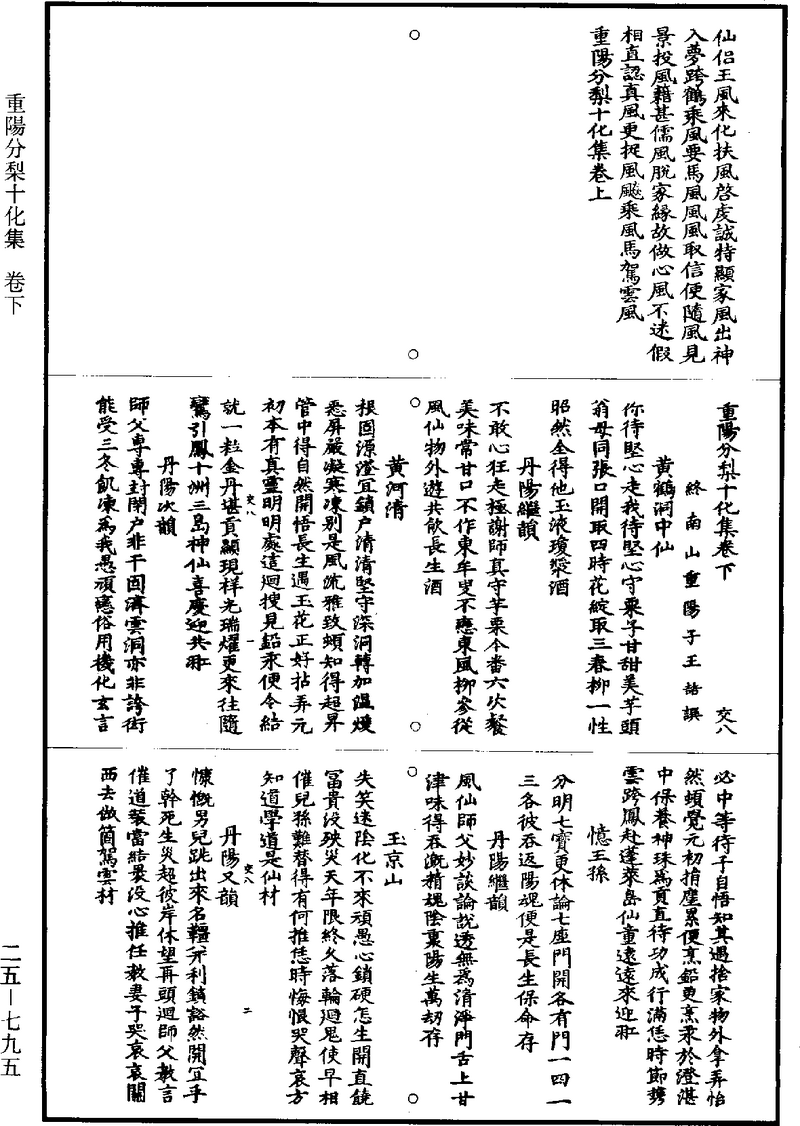 重陽分梨十化集　卷下
仙侶王風來化扶風啓虔誠特顯家風出神
入夢跨鶴乘風要馬風風風取信便隨風見
景投風籍甚儒風脫家緣故做心風不迷假
相直認真風更捉風颷乘風馬駕雲風
重陽分梨十化集卷上
重陽分梨十化集卷下　交八
終南山重陽子王嚞譔
黃鶴洞中仙
你待堅心走我待堅心守栗子甘甜美芋頭
翁母同張口開取四時花綻取三春柳一性
昭然全得他玉液瓊漿酒
丹陽繼韻
不敢心狂走極謝師真守芋栗今番六次餐
美味常甘口不作東牟叟不戀東風柳參從
風仙物外遊共飲長生酒
黃河清
根固源澄宜鎖戶清清堅守深洞轉加溫煖
悉屏嚴凝寒凍別是風流雅致頓知得超昇
管中得自然開悟長生遇玉花正好拈弄元
初本有真靈明明處這迴搜見鉛汞便令結
就一粒金丹堪貢顯現祥光瑞耀更來往隨
鸞引鳳十洲三島神仙喜慶迎共𢀖
丹陽次韻
師父專專封閉戶非干固濟雲洞亦非誇衒
能受三冬飢凍爲我愚頑戀俗用機化玄言
交八　一
必中等待予自悟知其遇捨家物外拿弄怡
然頓覺元初捐塵累便烹鉛更烹汞於澄湛
中保養神珠爲貢直待功成行滿恁時節騎
雲跨鳳赴蓬萊島仙童遠遠來迎𢀖
憶王孫
分明七寶更休論七座門開各有門一四一
三各彼吞返陽魂便是長生保命存
丹陽繼韻
風仙師父妙談論說透無爲清淨門舌上甘
津味得吞漱精魂陰裏陽生萬劫存
玉京山
失笑迷陰化不來頑愚心鎖硬怎生開直饒
冨貴沒殃災天年限終久落輪迴鬼使早相
催兒孫難替得有何推恁時悔恨哭聲哀方
知道學道是仙材
丹陽又韻
慷慨男兒跳出來名韁幷利鎖豁然開冝乎
了幹死生災超彼岸休望再頭迴師父教言
催道裝當結裹沒心推任教妻子哭哀哀關
西去做箇駕雲材
交八　二
二五—七九五